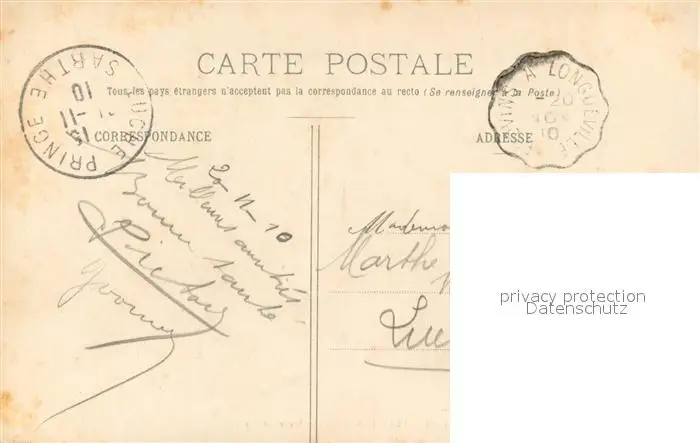 CARTE POSTALE
Tous les pays étrangers n'acceptent pas la correspondance au recto (Se renseigner à la Poste)
CORRESPONDANCE
ADRESSE
PRINGE
SARTHE
11
10
A LONGUEVILLE
20
10
20-11-10
Meilleures amitiés
Bonne santé
Yvonne
Mademoi
Marthe
privacy protection
Datenschutz